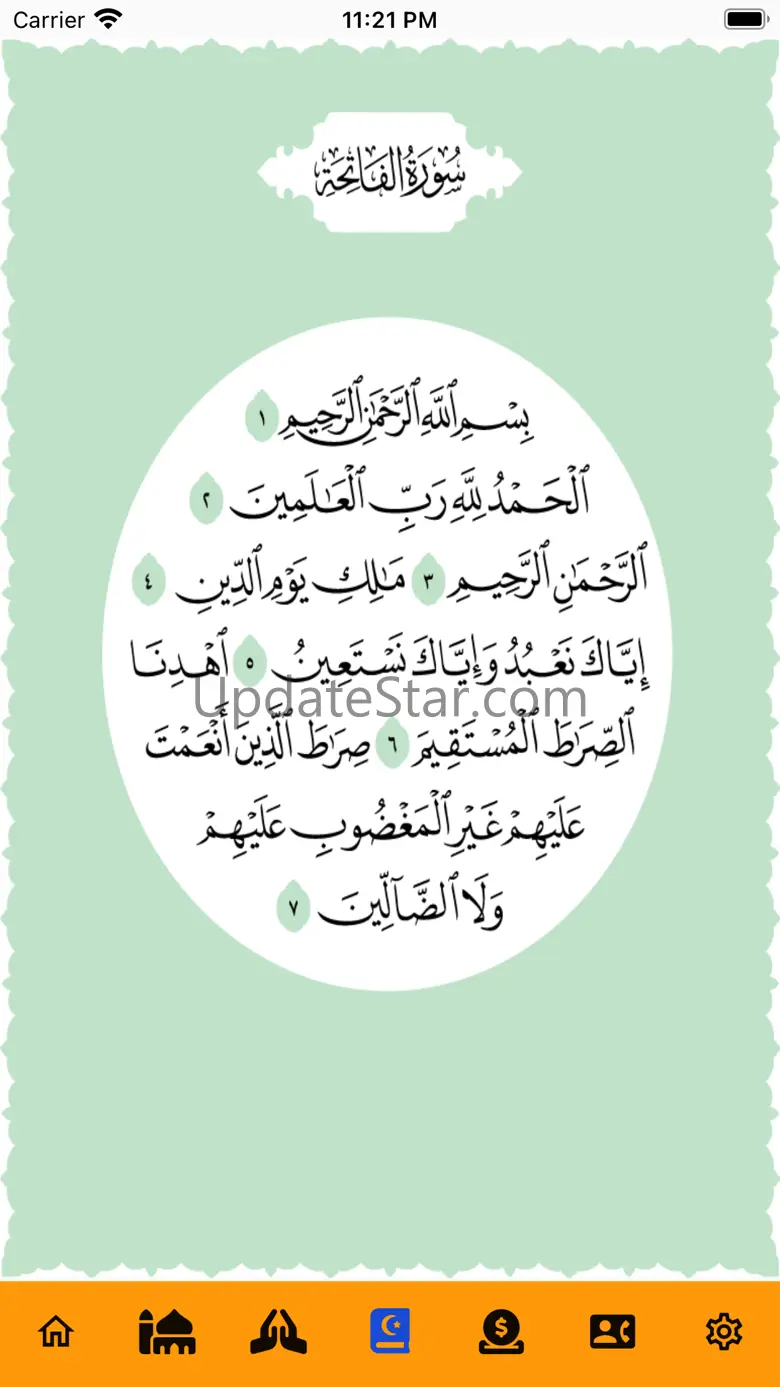 Carrier 11:21 PM
سُورَةُ الفَاتِحَةِ
بِسۡمِ ٱللَّهِ ٱلرَّحۡمَٰنِ ٱلرَّحِيمِ ١
ٱلۡحَمۡدُ لِلَّهِ رَبِّ ٱلۡعَٰلَمِينَ ٢
ٱلرَّحۡمَٰنِ ٱلرَّحِيمِ ٣ مَٰلِكِ يَوۡمِ ٱلدِّينِ ٤
إِيَّاكَ نَعۡبُدُ وَإِيَّاكَ نَسۡتَعِينُ ٥ ٱهۡدِنَا
UpdateStar.com
ٱلصِّرَٰطَ ٱلۡمُسۡتَقِيمَ ٦ صِرَٰطَ ٱلَّذِينَ أَنۡعَمۡتَ
عَلَيۡهِمۡ غَيۡرِ ٱلۡمَغۡضُوبِ عَلَيۡهِمۡ
وَلَا ٱلضَّآلِّينَ ٧